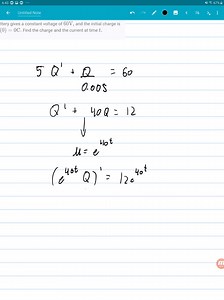 tery gives a constant voltage of 60V, and the initial charge is
(0) = 0C. Find the charge and the current at time t.
5 Q' + Q/0.005 = 60
Q' + 40Q = 12
μ = e^40t
(e^40t Q)' = 12e^40t